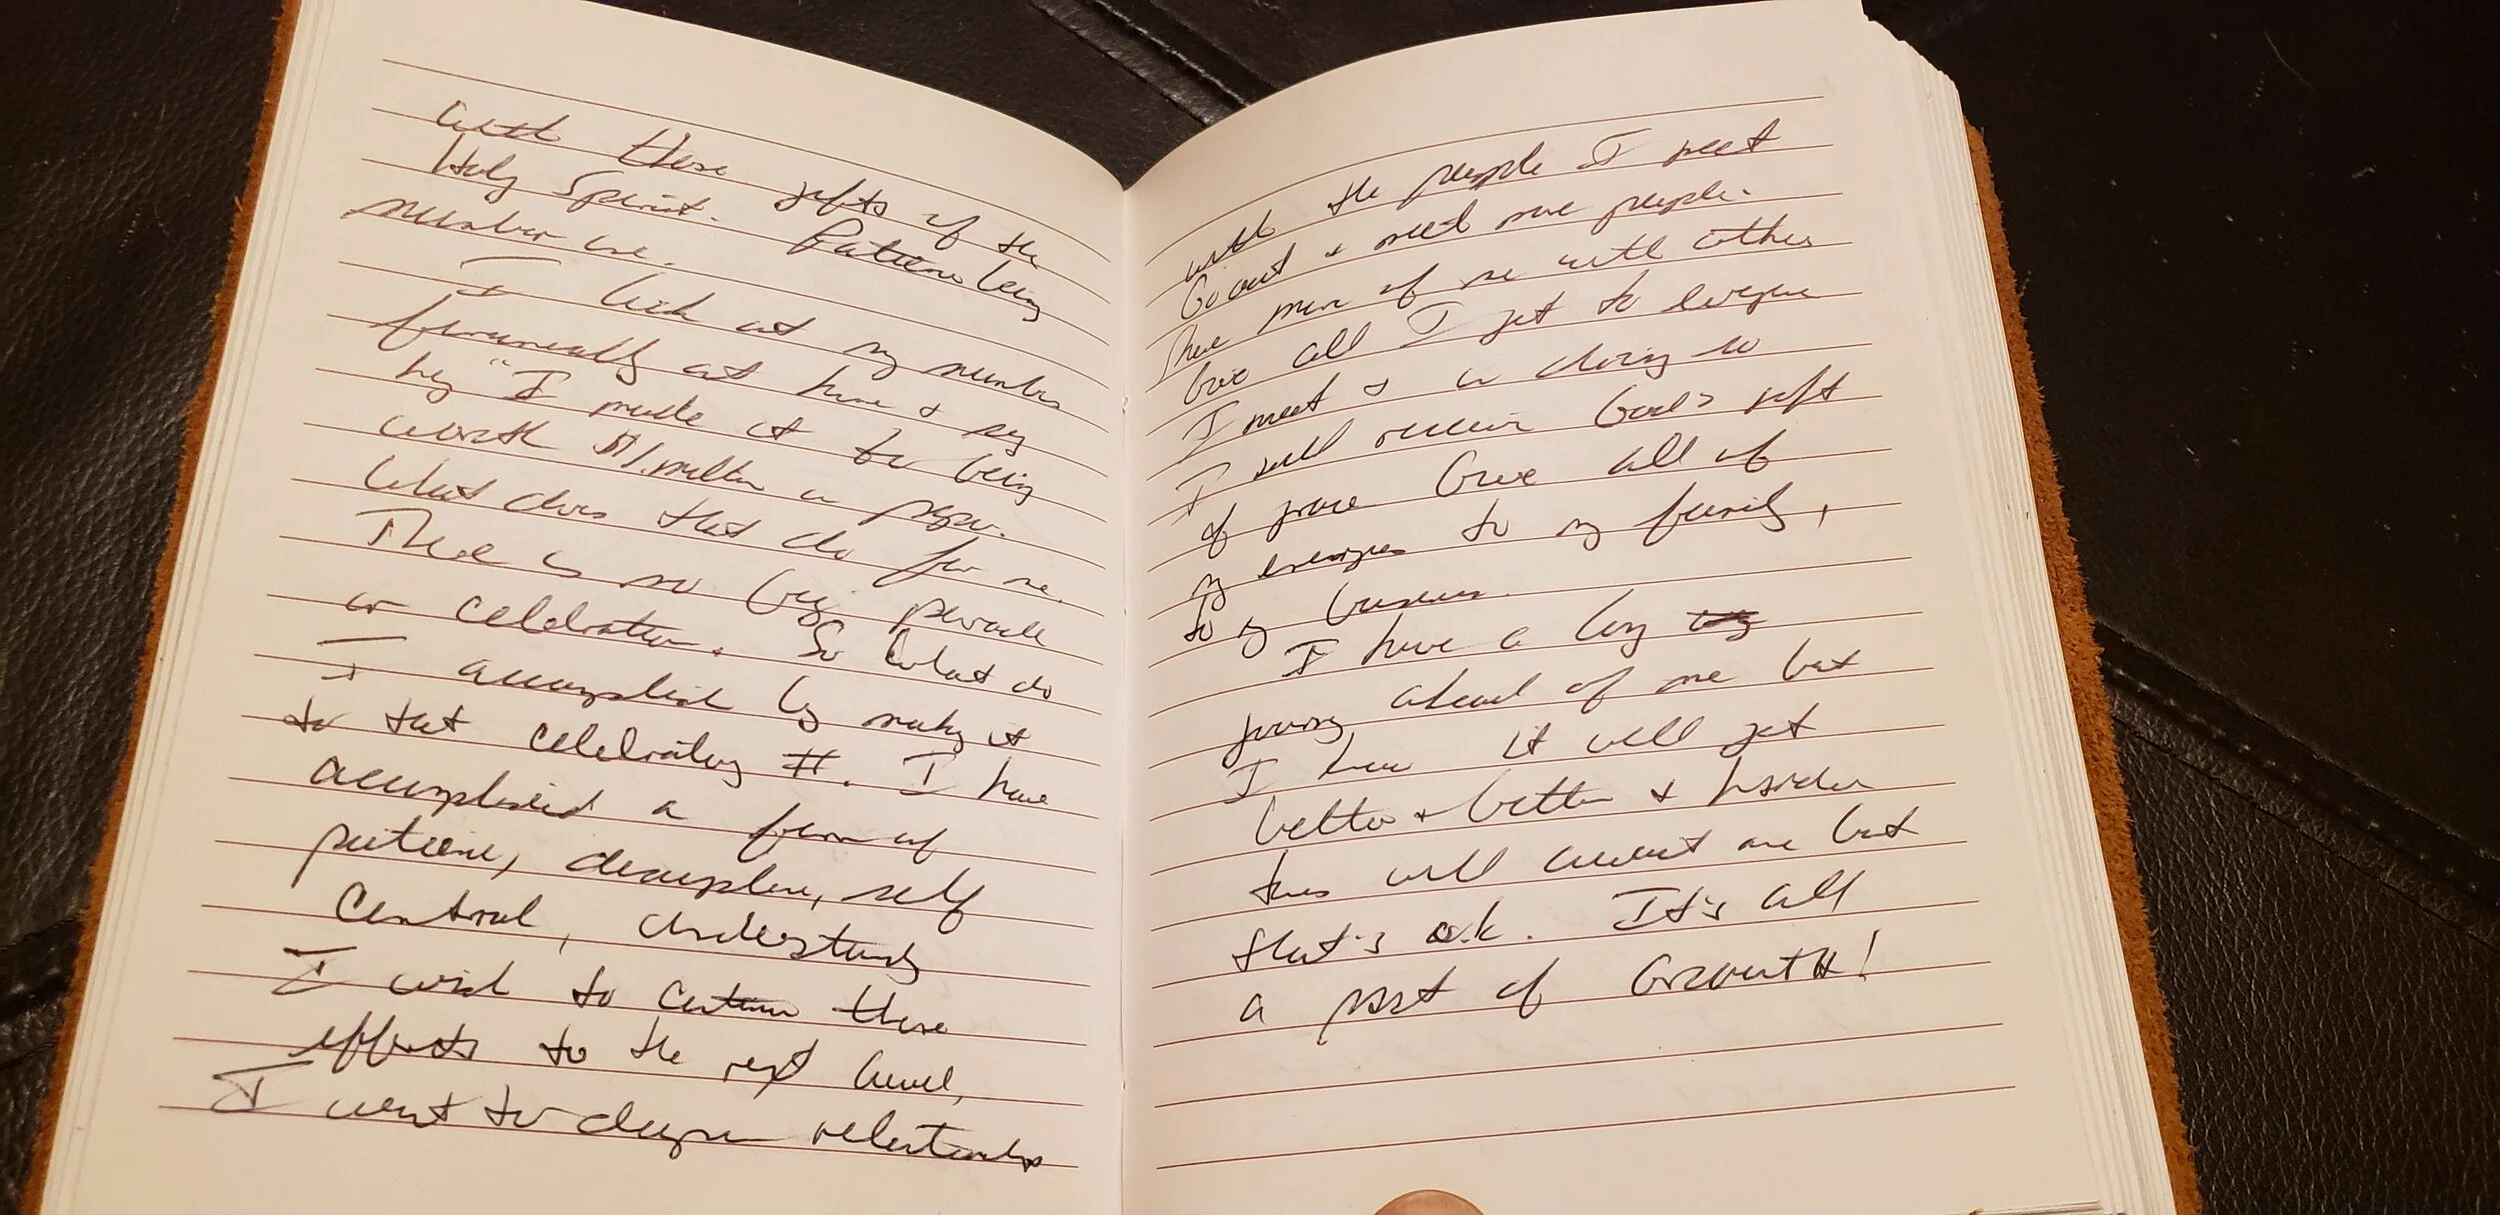 with these gifts of the
Holy Spirit. Patience being
number one.
I look at my numbers
financially at home & say
hey "I made it to being
worth $1. million on paper.
What does that do for me.
There is no big parade
or celebration. So what do
I accomplish by making it
to that celebrating #. I have
accomplished a form of
patience, discipline, self
control, understanding
I wish to continue these
efforts to the next level,
I want to deepen relationships
with the people I meet
Go out & meet more people.
Share more of me with others
Give all I get to everyone
I meet & in doing so
I will receive God's gift
of grace Give all of
my energies to my family,
to my business.
I have a long
journey ahead of me but
I know it will get
better & better & harder
this will await me but
that's o.k. It's all
a part of Growth!